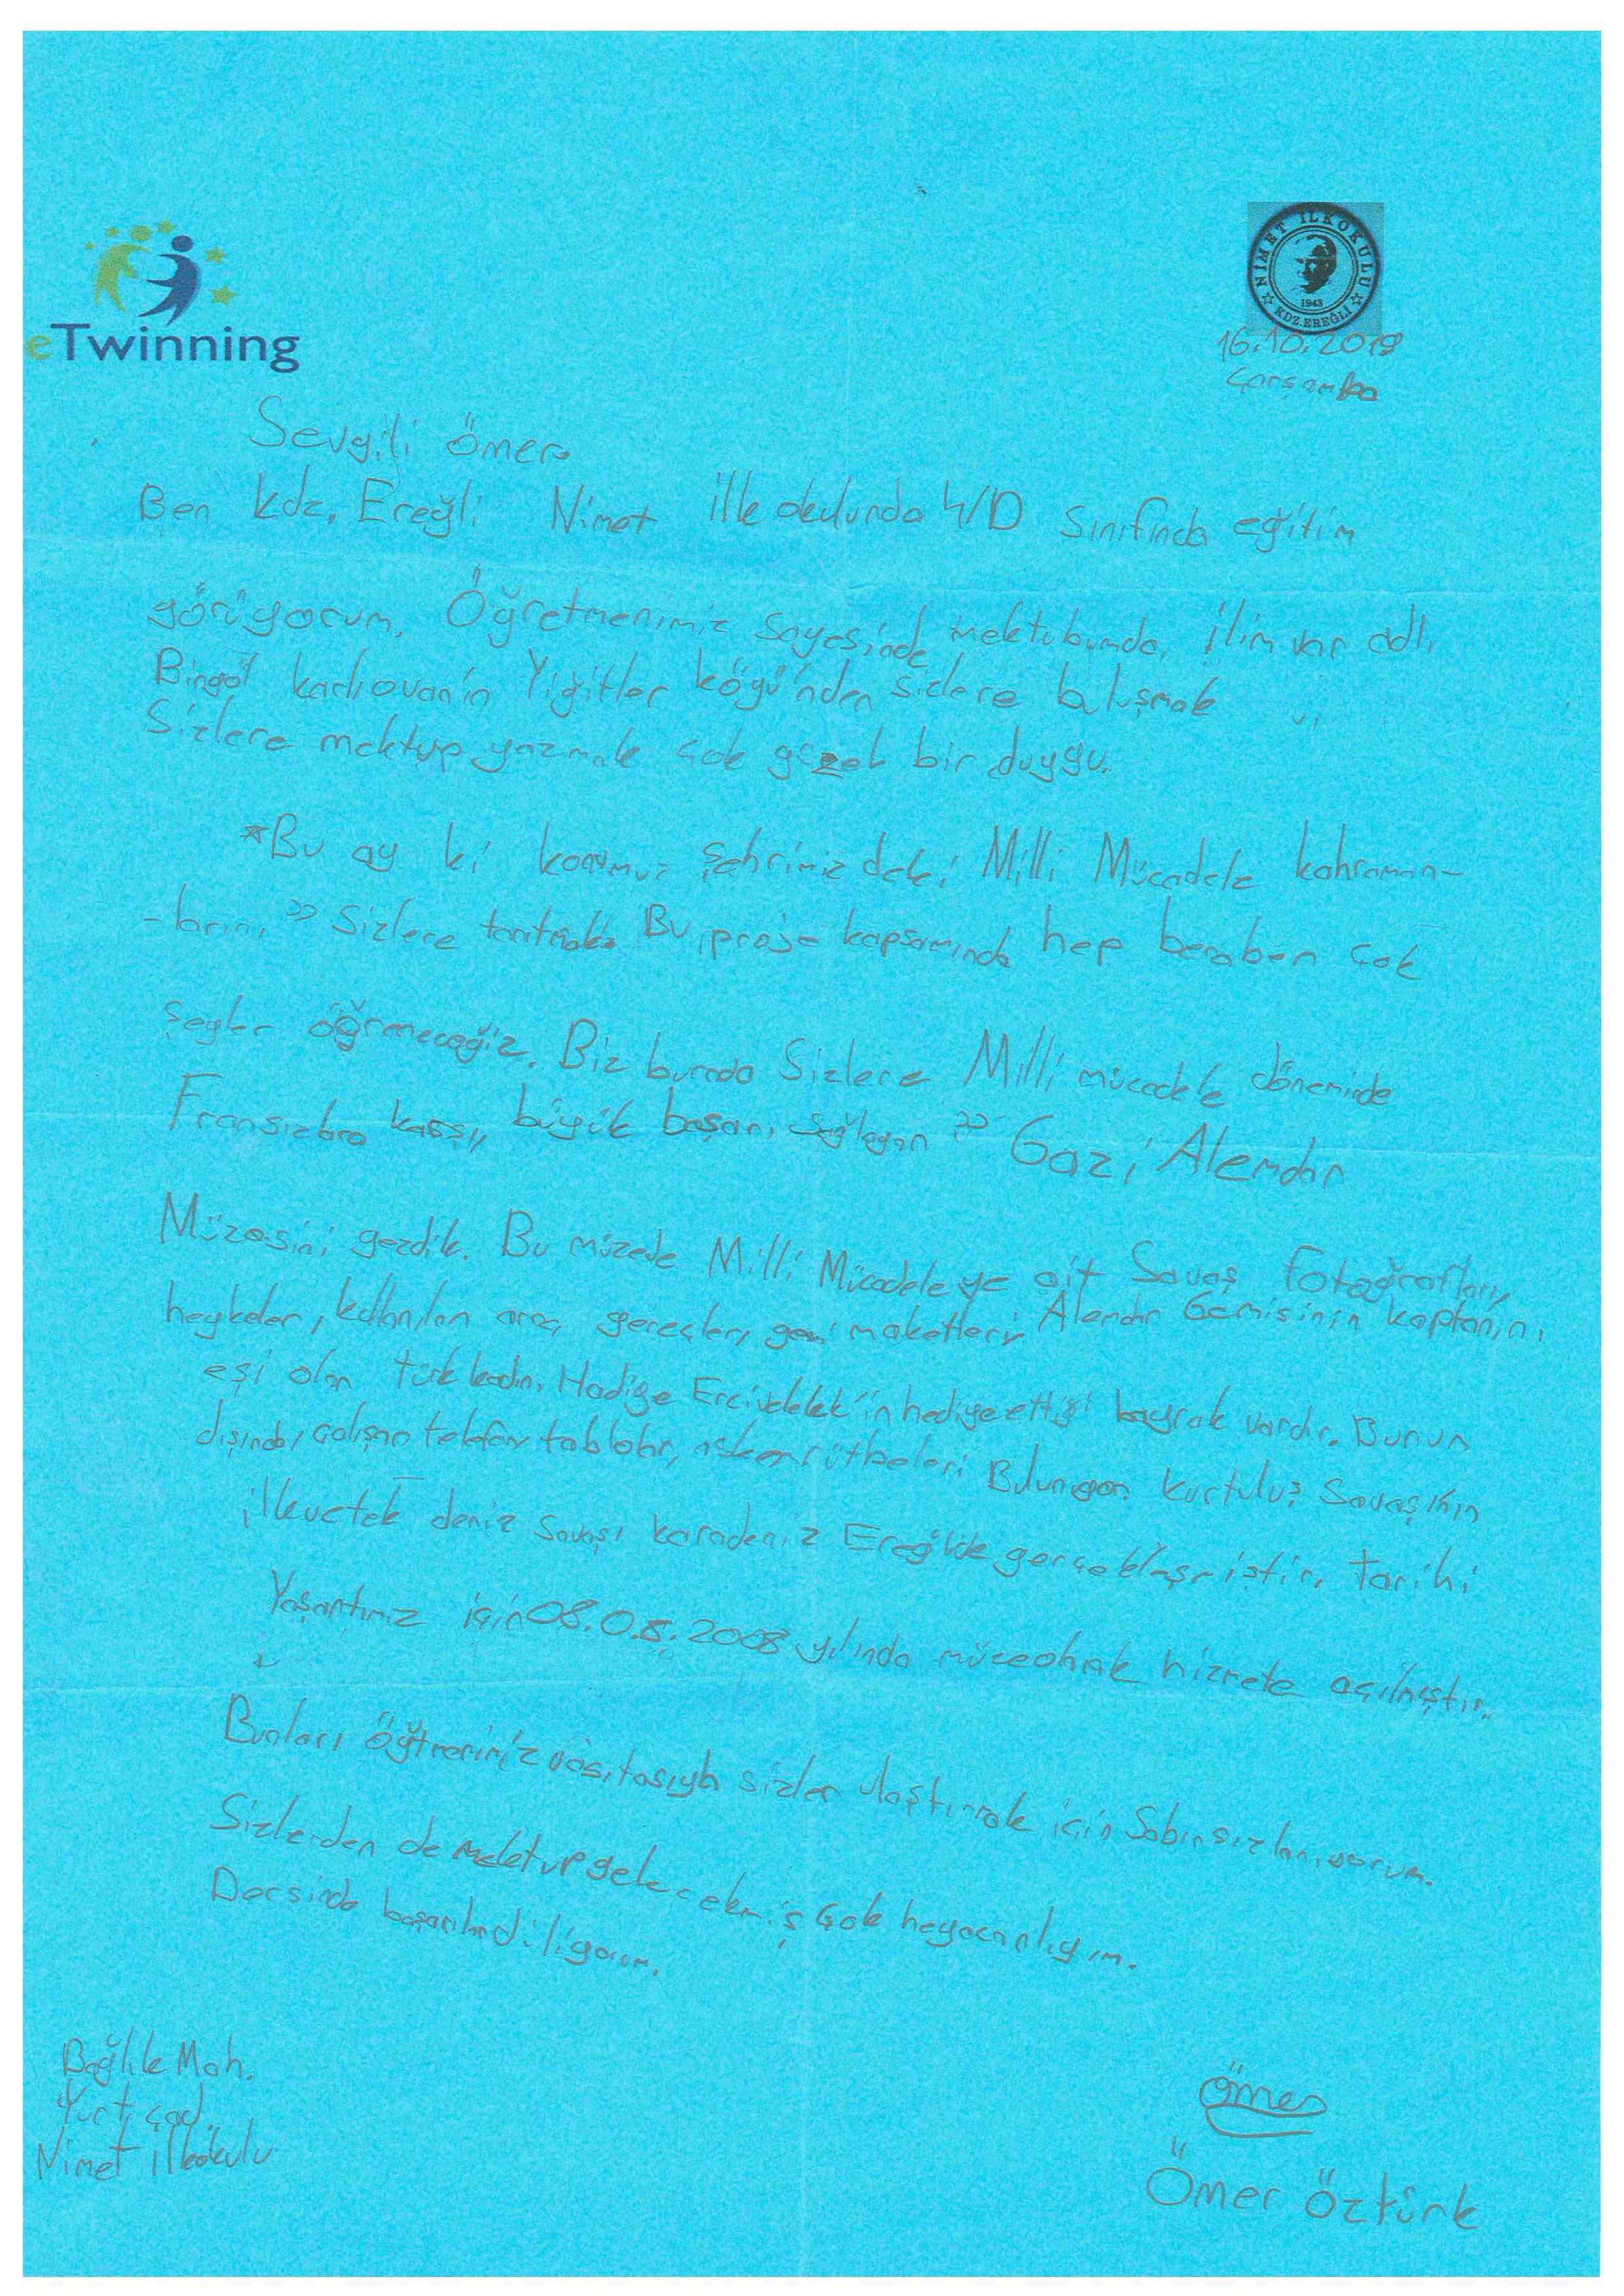 eTwinning
NİMET İLKOKULU
1943
KDZ.EREĞLİ
16.10.2019
Çarşamba
Sevgili Ömer
Ben kdz. Ereğli Nimet ilkokulunda 4/D sınıfında eğitim
görüyorum. Öğretmenimiz sayesinde mektubumda, ilim var adlı
Bingöl karlıovanın Yiğitler köyü'nden sizlere buluşmak
Sizlere mektup yazmak çok güzel bir duygu.
*Bu ay ki konumuz şehrimizdeki Milli Mücadele kahraman-
-larını " Sizlere tanıtmak. Bu proje kapsamında hep beraber çok
şeyler öğreneceğiz. Biz burada Sizlere Milli mücadele döneminde
Fransızlara karşı, büyük başarı sağlayan " Gazi Alemdar
Müzesini gezdik. Bu müzede Milli Mücadeleye ait Savaş Fotoğrafları,
heykeler, kullanılan araç gereçler, gemi maketleri Alemdar Gemisinin kaptanını
eşi olan türk kadını Hadiye Ercivelek'in hediye ettiği bayrak vardır. Bunun
dışında, çalışan telefon tablolar, asker rütbeleri Bulunuyor. Kurtuluş Savaşının
ilk ve tek deniz savaşı karadeniz Ereğlide gerçekleşmiştir. tarihi
Yaşantımız için 08.0.8.2008 yılında müze olarak hizmete açılmıştır.
Bunları öğtmenimiz vasıtasıyla sizler ulaştırmak için Sabırsızlanıyorum.
Sizlerden de mektup gelecekmiş çok heyecanlıyım.
Dersinde başarılar diliyorum.
Bağlık Mah.
Yurt cad.
Nimet ilkokulu
Ömer
Ömer Öztürk